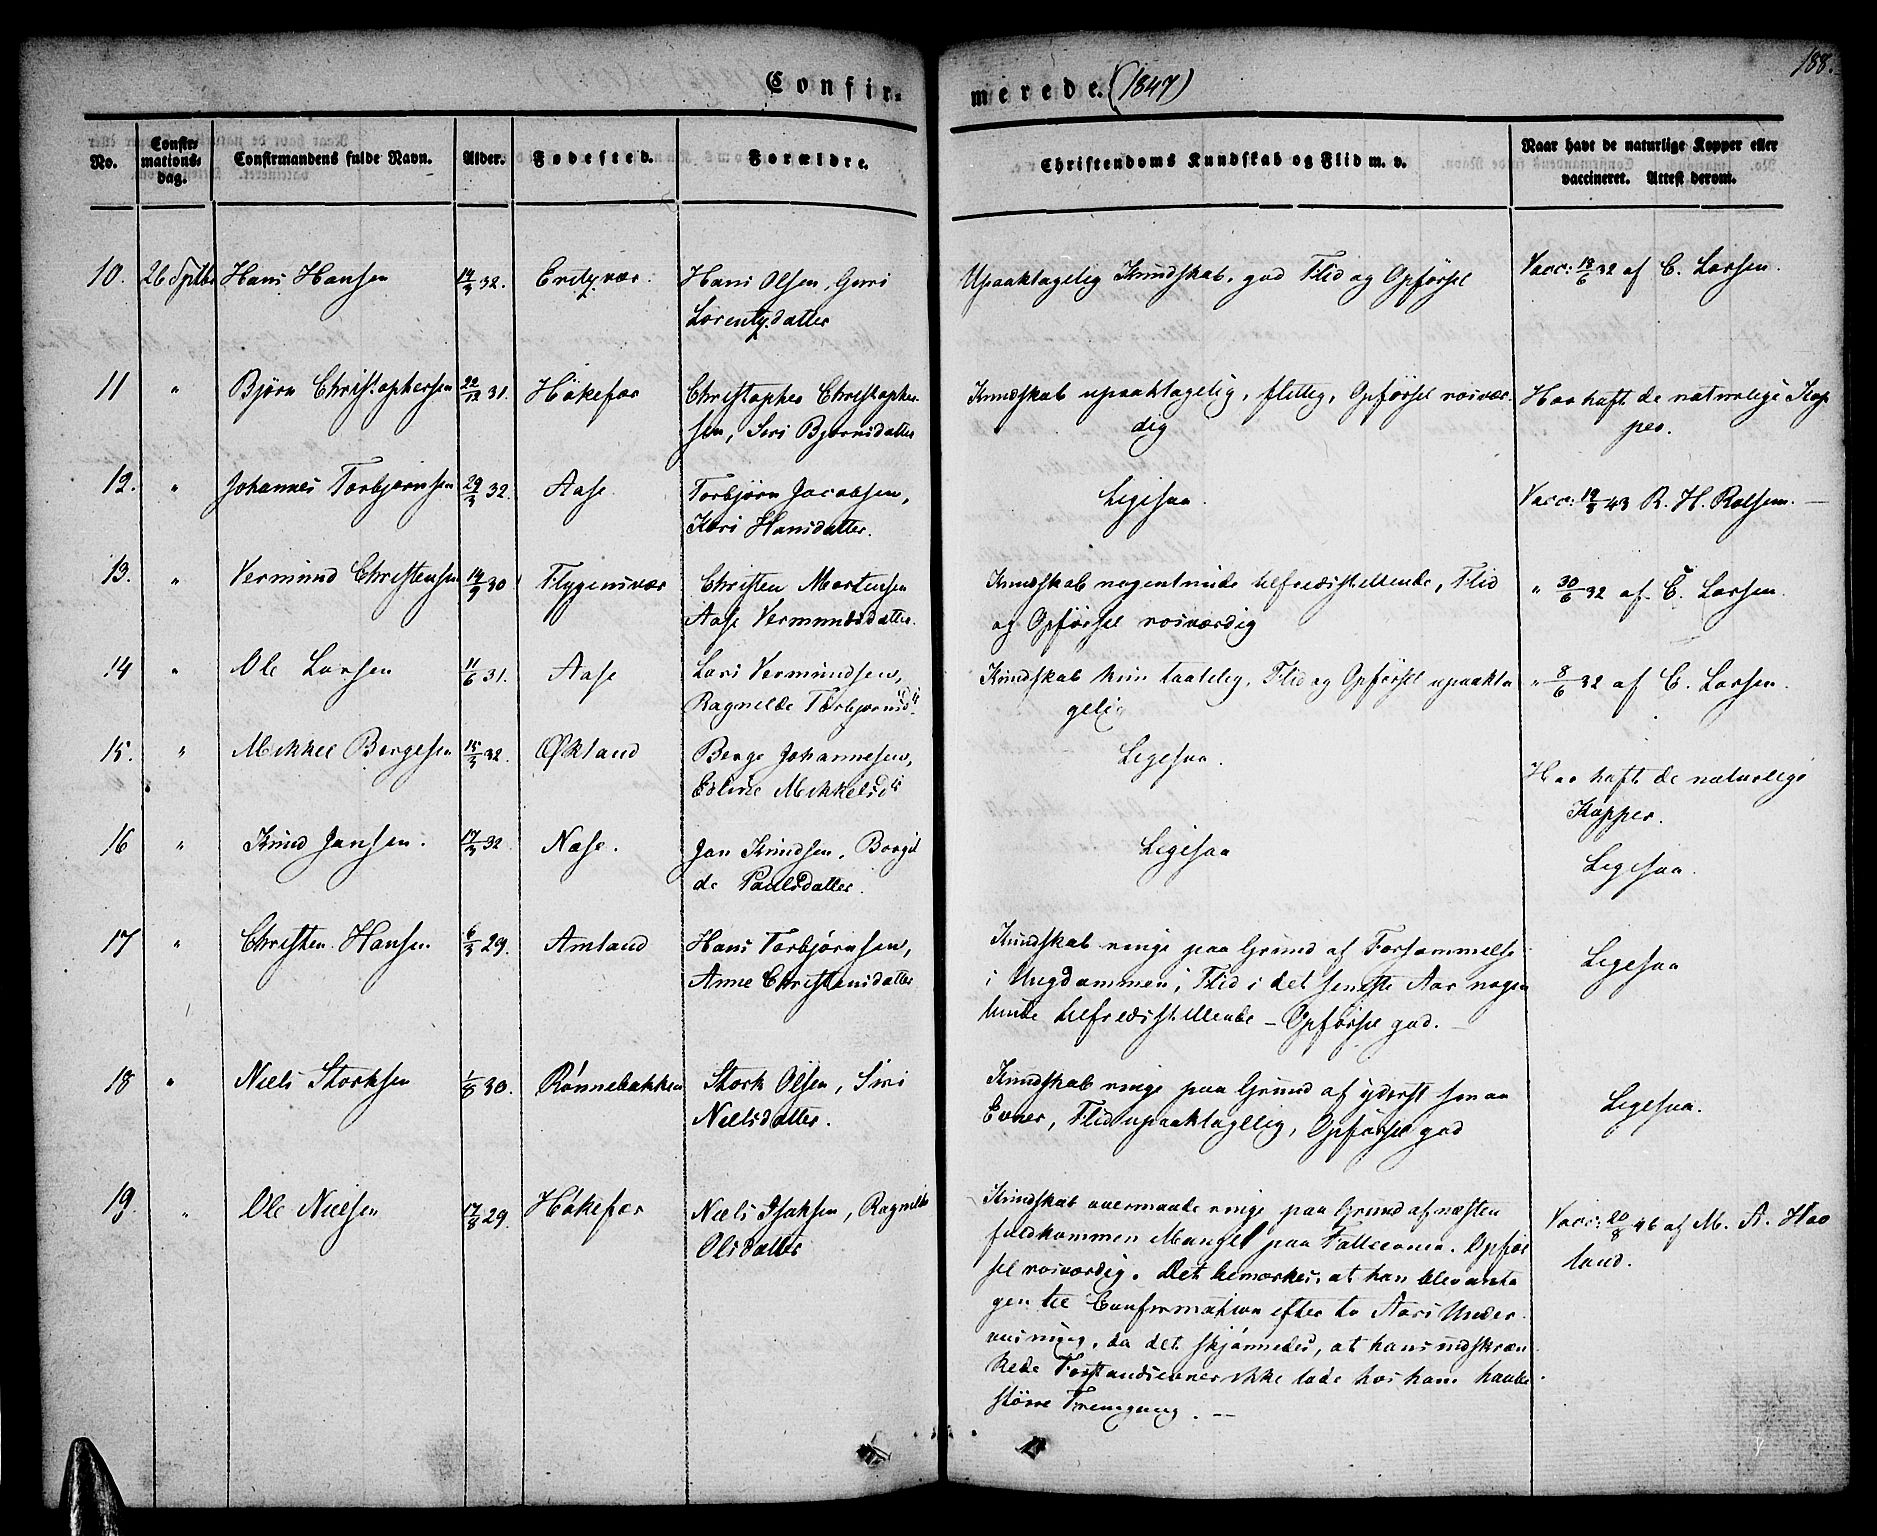 188.
Confir-
merede. (1847)
No.
Confir-
mations-
dag.
Confirmandens fulde Navn.
Alder.
Fødested.
Forældre.
Christendoms Kundskab og Flid m. v.
Naar havt de naturlige Kopper eller
vaccineret. Attest derom.
10. 26 Sptbr Hans Hansen 14/3 32. Hans Olsen,
Lorentzdatter
Upaaklagelig Kundskab, god Flid og Opførsel
Vacc: 18/6 32 af C. Larsen.
11 " Bjørn Christophersen 22/12 31. Høkefar Christopher Christopher-
sen, Siri Bjørnsdatter
Kundskab upaaklagelig, flittig, Opførsel rosvær-
dig
Har haft de naturlige Kop
per.
12. " Johannes Torbjørnsen 29/3 32. Aase. Torbjørn Jacobsen,
Kari Hansdatter.
Ligesaa.
Vacc: 19/3 43 R. H. Rolsem. —
13. " Vermund Christensen 14/9 30 Flygensvær Christen Mortensen
Aase Vermundsdatter.
Kundskab nogenlunde tilfredsstillende, Flid
og Opførsel rosværdig
" 30/6 32 af C. Larsen.
14 " Ole Larsen 11/6 31. Aase Lars Vermundsen,
Ragnilde Torbjørnsd.
Kundskab kun taalelig, Flid og Opførsel upaakla
gelig
" 8/6 32 af C. Larsen.
15. " Mikkel Børgesen 15/3 32. Økland Børge Johannesen,
Mikkelsd.
Ligesaa.
Har haft de naturlige
Kopper.
16 " Knud Jansen. 17/3 32. Nase. Jan Knudsen, Borgil
de Poulsdatter.
Ligesaa
Ligesaa.
17 " Christen Hansen 6/3 29. Amland Hans Torbjørnsen,
Anne Christensdatter
Kundskab ringe paa Grund af Forsømmelse
i Ungdommen, Flid i det seneste Aar nogen
lunde tilfredsstillende – Opførsel god. –
Ligesaa
18 " Niels Storksen 1/8 30. Rønnebakken Stork Olsen, Siri
Nielsdatter.
Kundskab ringe paa Grund af yderst smaa
Evner, Flid upaaklagelig, Opførsel god
Ligesaa.
19. " Ole Nielsen 17/8 29. Høkefar Niels Isaksen, Ragnilde
Olsdatter
Kundskab overmaade ringe paa Grund af næsten
fuldkommen Mangel paa Fatteevne. Opfør
sel rosværdig. Det bemærkes, at han blev anta
gen til Confirmation efter to Aars Under-
viisning, da det skjønnedes, at hans indskræn-
kede Forstandsevner ikke lode hos ham haabe
større Fremgang. —
Vacc: 20/8 46 af M. A. Haa
land.